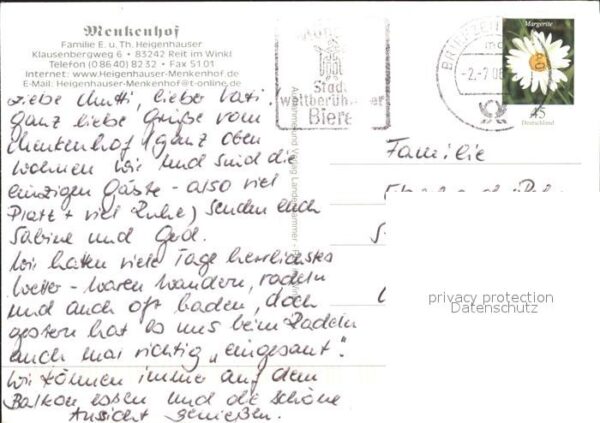 Menkenhof
Familie E. u. Th. Heigenhauser
Klausenbergweg 6 • 83242 Reit im Winkl
Telefon (0 86 40) 82 32 • Fax 51 01
Internet: www.Heigenhauser-Menkenhof.de
E-Mail: Heigenhauser-Menkenhof@t-online.de
Liebe Mutti, lieber Vati.
ganz liebe Grüße vom
Menkenhof (ganz oben
wohnen wir und sind die
einzigen Gäste - also viel
Platz + viel Ruhe) senden euch
Sabine und Gerd.
Wir hatten viele Tage herrlichstes
Wetter - waren wandern, radeln
und auch oft baden, doch
gestern hat es uns beim Radeln
auch mal richtig „eingesaut“.
Wir können immer auf dem
Balkon essen und die schöne
Aussicht genießen.
Stadt
weltberühmter
Biere
BRIEFZENTRUM
-2.-7.08
Margerite
45
Deutschland
Familie
privacy protection
Datenschutz